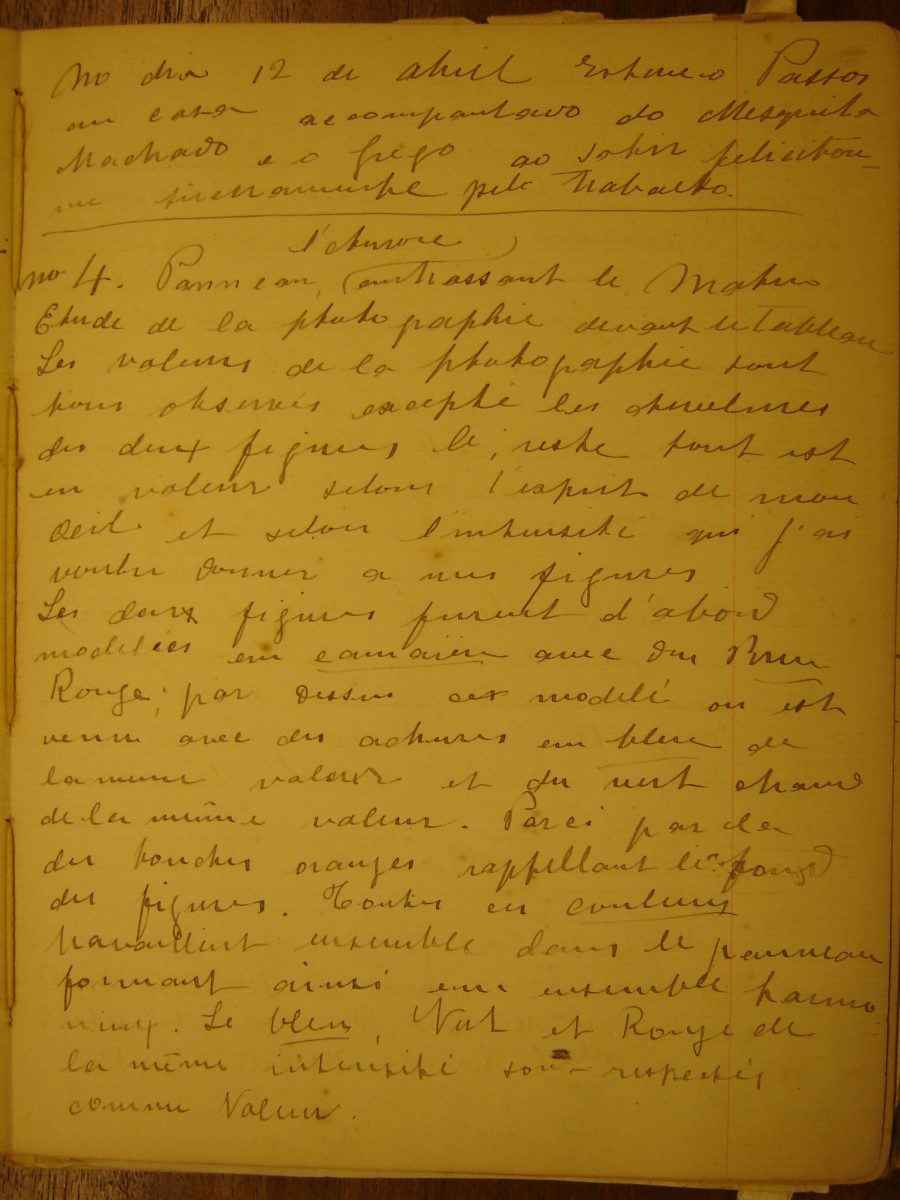 No dia 12 de Abril Esteve o Passos
em casa acompanhado do Mesquita
Machado e o Grego ao sahir felicitou-
me sinceramente pelo trabalho.
l'Aurore
no 4. Panneau, embrassant le Matin
Etude de la photographie devant le Tableau
Les valeurs de la photographie sont
tous observés excepté les chevelures
des deux figures le, reste tout est
en valeur selon l'esprit de mon
Oeil et selon l'intensité que j'ai
voulu donner a mes figures
Les deux figures furent d'abord
modelées em camaieu avec du Brun
Rouge; par dessus ces modelé on est
venu avec des achures em bleu de
la meme valeur et du vert chaud
de la même valeur. Parci par la
des touches oranges rappellant le fond
des figures. Toutes es couleurs
travaillent ensemble dans le panneau
formant ainsi em ensemble harmo
nieux. Le bleu, Vert et Rouge de
la même intensité sont respectés
comme Valeur.